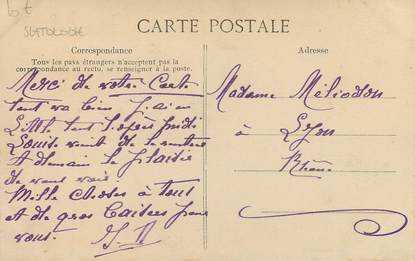 10 €
SCATOLOGIE
CARTE POSTALE
Correspondance
Tous les pays étrangers n'acceptent pas la
correspondance au recto, se renseigner à la poste.
Merci de votre Carte
tout va bien j'ai eu
tout
Louise vient de
A demain le plaisir
de vous voir.
Mille choses à tous
et de gros Baisers pour
vous.
Adresse
Madame Méliodon
à
Lyon
Rhône